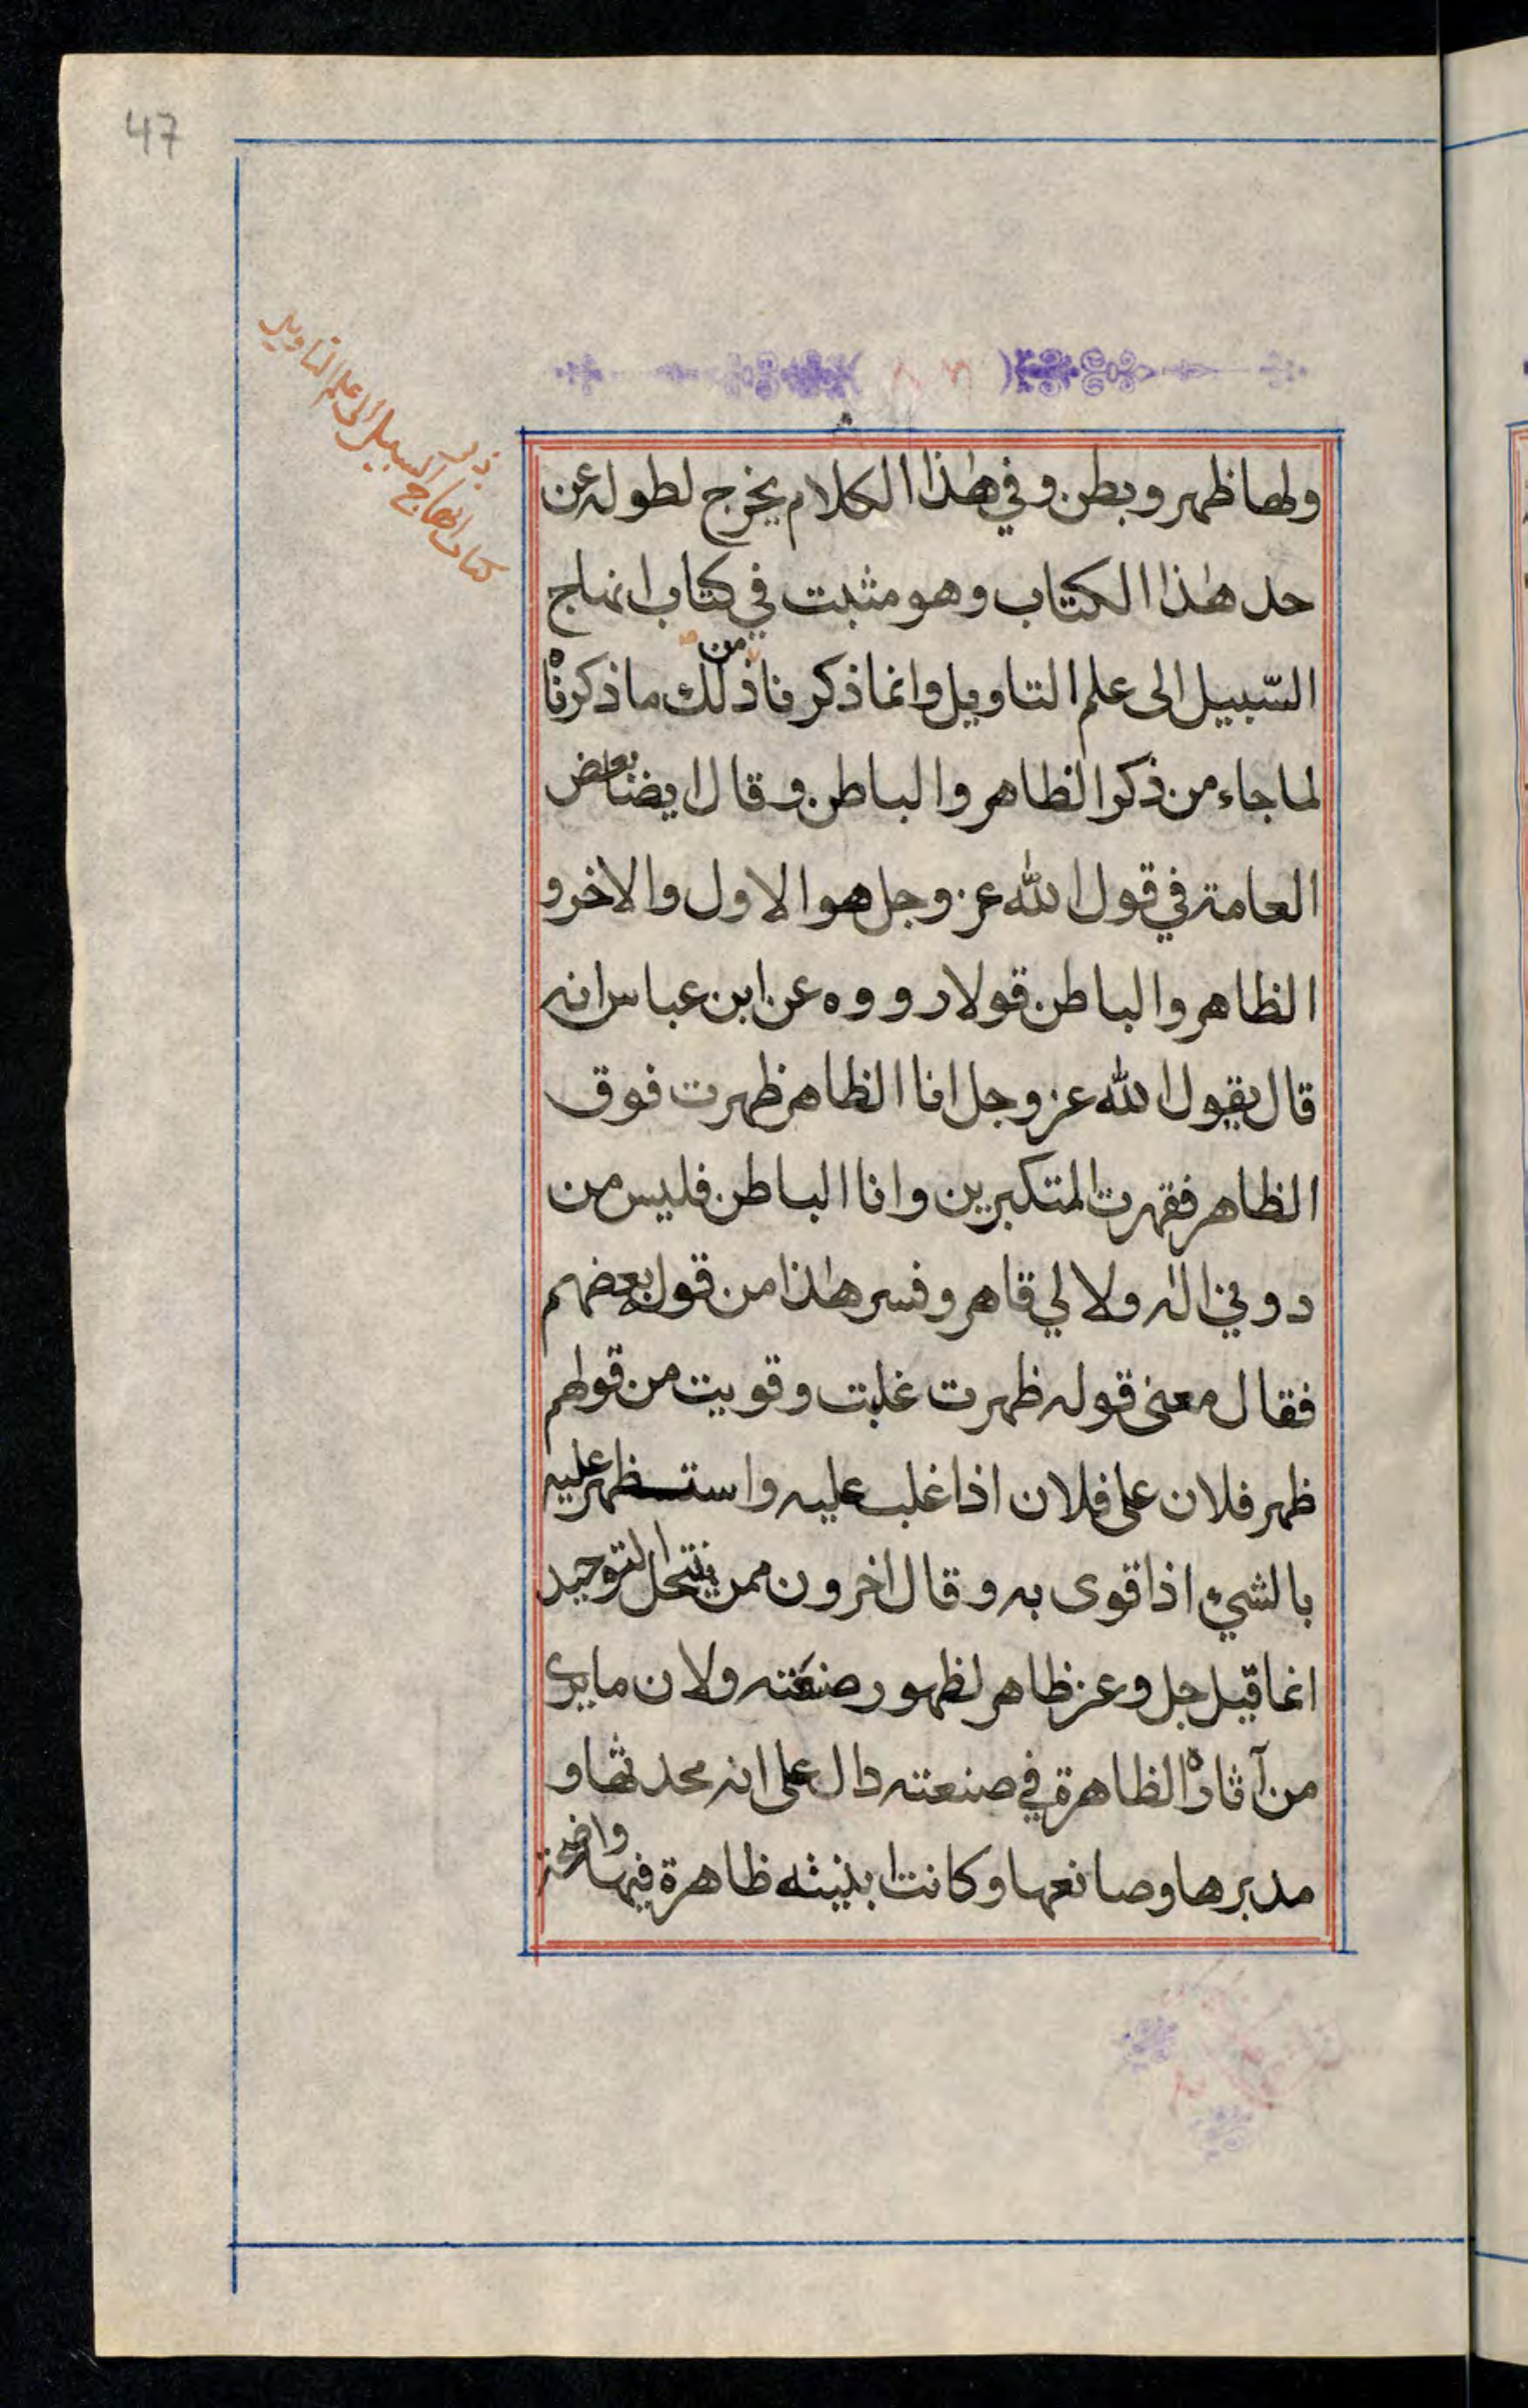 47
٨٦
ولها ظهر وبطن وفي هٰذا الكلام يخرج لطوله عن
حد هٰذا الكتاب وهو مثبت في كتاب انهاج
السّبيل الى علم التاويل وانما ذكرنا من ذلك ما ذكرناه
لما جاء من ذكر الظاهر والباطن وقال ايضا بعض
العامة في قول الله عز وجل هو الاول والاخر و
الظاهر والباطن قولا رووه عن ابن عباس انه
قال يقول الله عز وجل انا الظاهر ظهرت فوق
الظاهر فقهرت المتكبرين وانا الباطن فليس من
دوني اله ولا لي قاهر وفسر هٰذا من قول بعضهم
فقال معنى قوله ظهرت غلبت وقويت من قولهم
ظهر فلان على فلان اذا غلب عليه واستظهر عليه
بالشيء اذا قوى به وقال اخرون ممن ينتحل التوحيد
انما قيل جل وعز ظاهر لظهور صنعته ولان ما يرى
من آثاره الظاهرة في صنعته دال على انه محدثها و
مدبرها وصانعها وكانت ابنيته ظاهرة فيها واضحة
كتاب انهاج السبيل الى علم التاويل